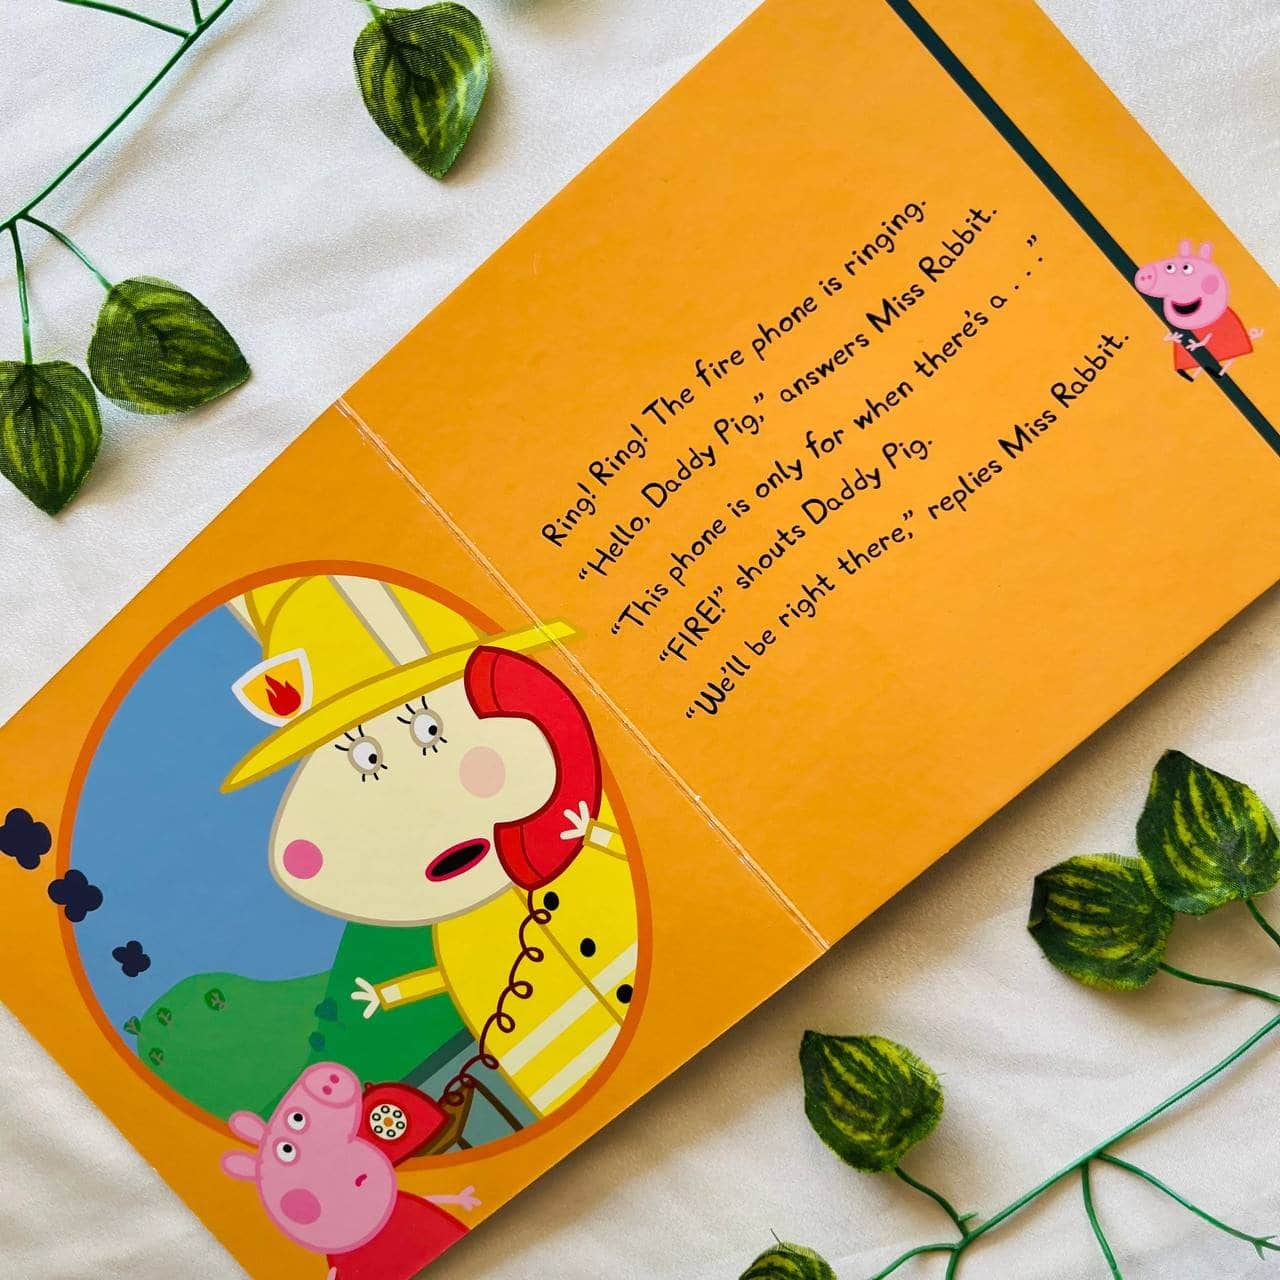 Ring! Ring! The fire phone is ringing.
“Hello, Daddy Pig,” answers Miss Rabbit.
“This phone is only for when there’s a . . .”
“FIRE!” shouts Daddy Pig.
“We’ll be right there,” replies Miss Rabbit.